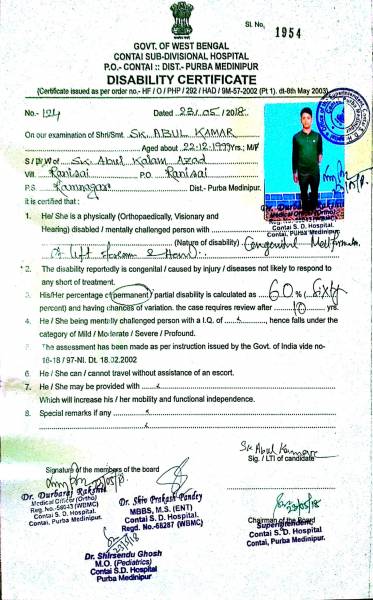 Sl. No. 1954
GOVT. OF WEST BENGAL
CONTAI SUB-DIVISIONAL HOSPITAL
P.O.- CONTAI :: DIST.- PURBA MEDINIPUR
DISABILITY CERTIFICATE
(Certificate issued as per order no.- HF / O / PHP / 292 / HAD / 9M-57-2002 (Pt 1). dt-8th May 2003)
No.- 124 Dated 23/05/2018.
On our examination of Shri/Smt. SK. ABUL KAMAR
Aged about 22-12-1999 Yrs.; M/F
S/D/W of Sk. Abul Kalam Azad
Vill Ranisai P.O. Ranisai
P.S. Ramnagar Dist.- Purba Medinipur.
It is certified that :
1. He/ She is a physically (Orthopaedically, Visionary and
Hearing) disabled / mentally challenged person with
(Nature of disability) Congenital Malformation
of left forearm & Hand.
2. The disability reportedly is congenital / caused by injury / diseases not likely to respond to
any short of treatment.
3. His/Her percentage of permanent / partial disability is calculated as 60 % ( Sixty
percent) and having chances of variation. the case requires review after 10 yrs.
4. He / She being mentally challenged person with a I.Q. of hence falls under the
category of Mild / Moderate / Severe / Profound.
5. The assessment has been made as per instruction issued by the Govt. of India vide no-
16-18 / 97-NI. Dt. 18.02.2002
6. He / She can / cannot travel without assistance of an escort.
7. He / She may be provided with
Which will increase his / her mobility and functional independence.
8. Special remarks if any
Sk Abul Kamar
Sig. / LTI of candidate
Signature of the members of the board
Dr. Durbaraj Rakshit
Medical Officer (Ortho)
Regd. No.-56043 (WBMC)
Contai S. D. Hospital.
Contai, Purba Medinipur.
Dr. Shiv Prakash Pandey
MBBS, M.S. (ENT)
Contai S. D. Hospital.
Regd. No.-66287 (WBMC)
23/5/18
Chairman of the Board
Superintendent
Contai S. D. Hospital
Contai, Purba Medinipur.
Dr. Shirsendu Ghosh
M.O. (Pediatrics)
Contai S.D. Hospital
Purba Medinipur